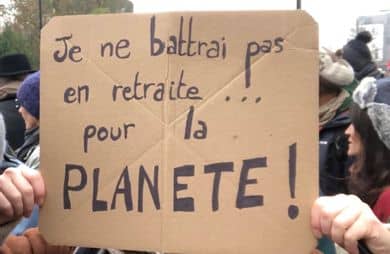 Je ne battrai pas
en retraite ...
pour la
PLANETE !